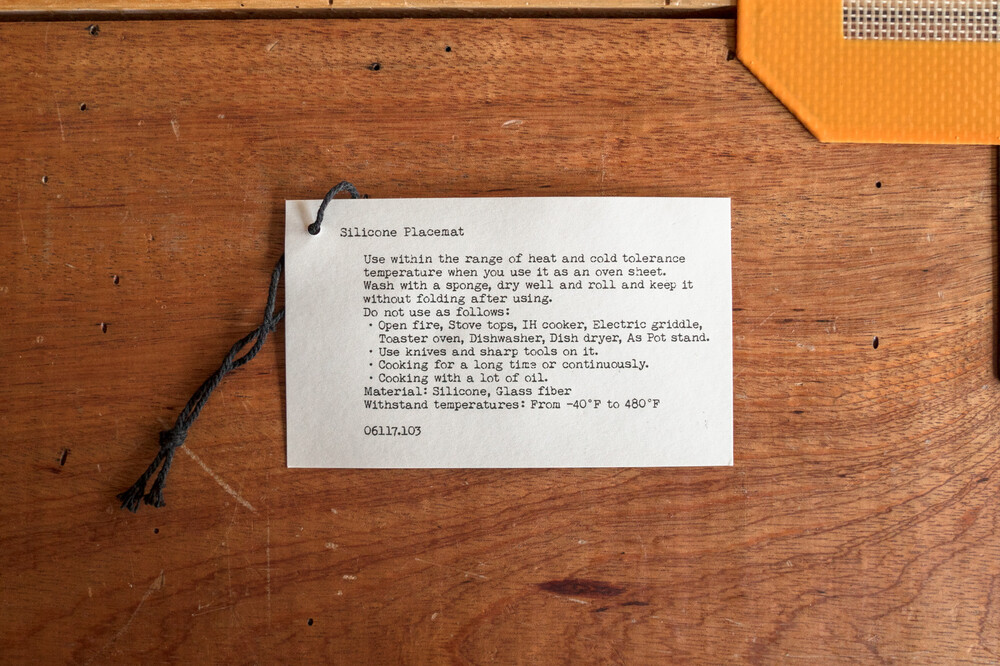 Silicone Placemat
Use within the range of heat and cold tolerance
temperature when you use it as an oven sheet.
Wash with a sponge, dry well and roll and keep it
without folding after using.
Do not use as follows:
・Open fire, Stove tops, IH cooker, Electric griddle,
Toaster oven, Dishwasher, Dish dryer, As Pot stand.
・Use knives and sharp tools on it.
・Cooking for a long time or continuously.
・Cooking with a lot of oil.
Material: Silicone, Glass fiber
Withstand temperatures: From -40°F to 480°F
06117.103